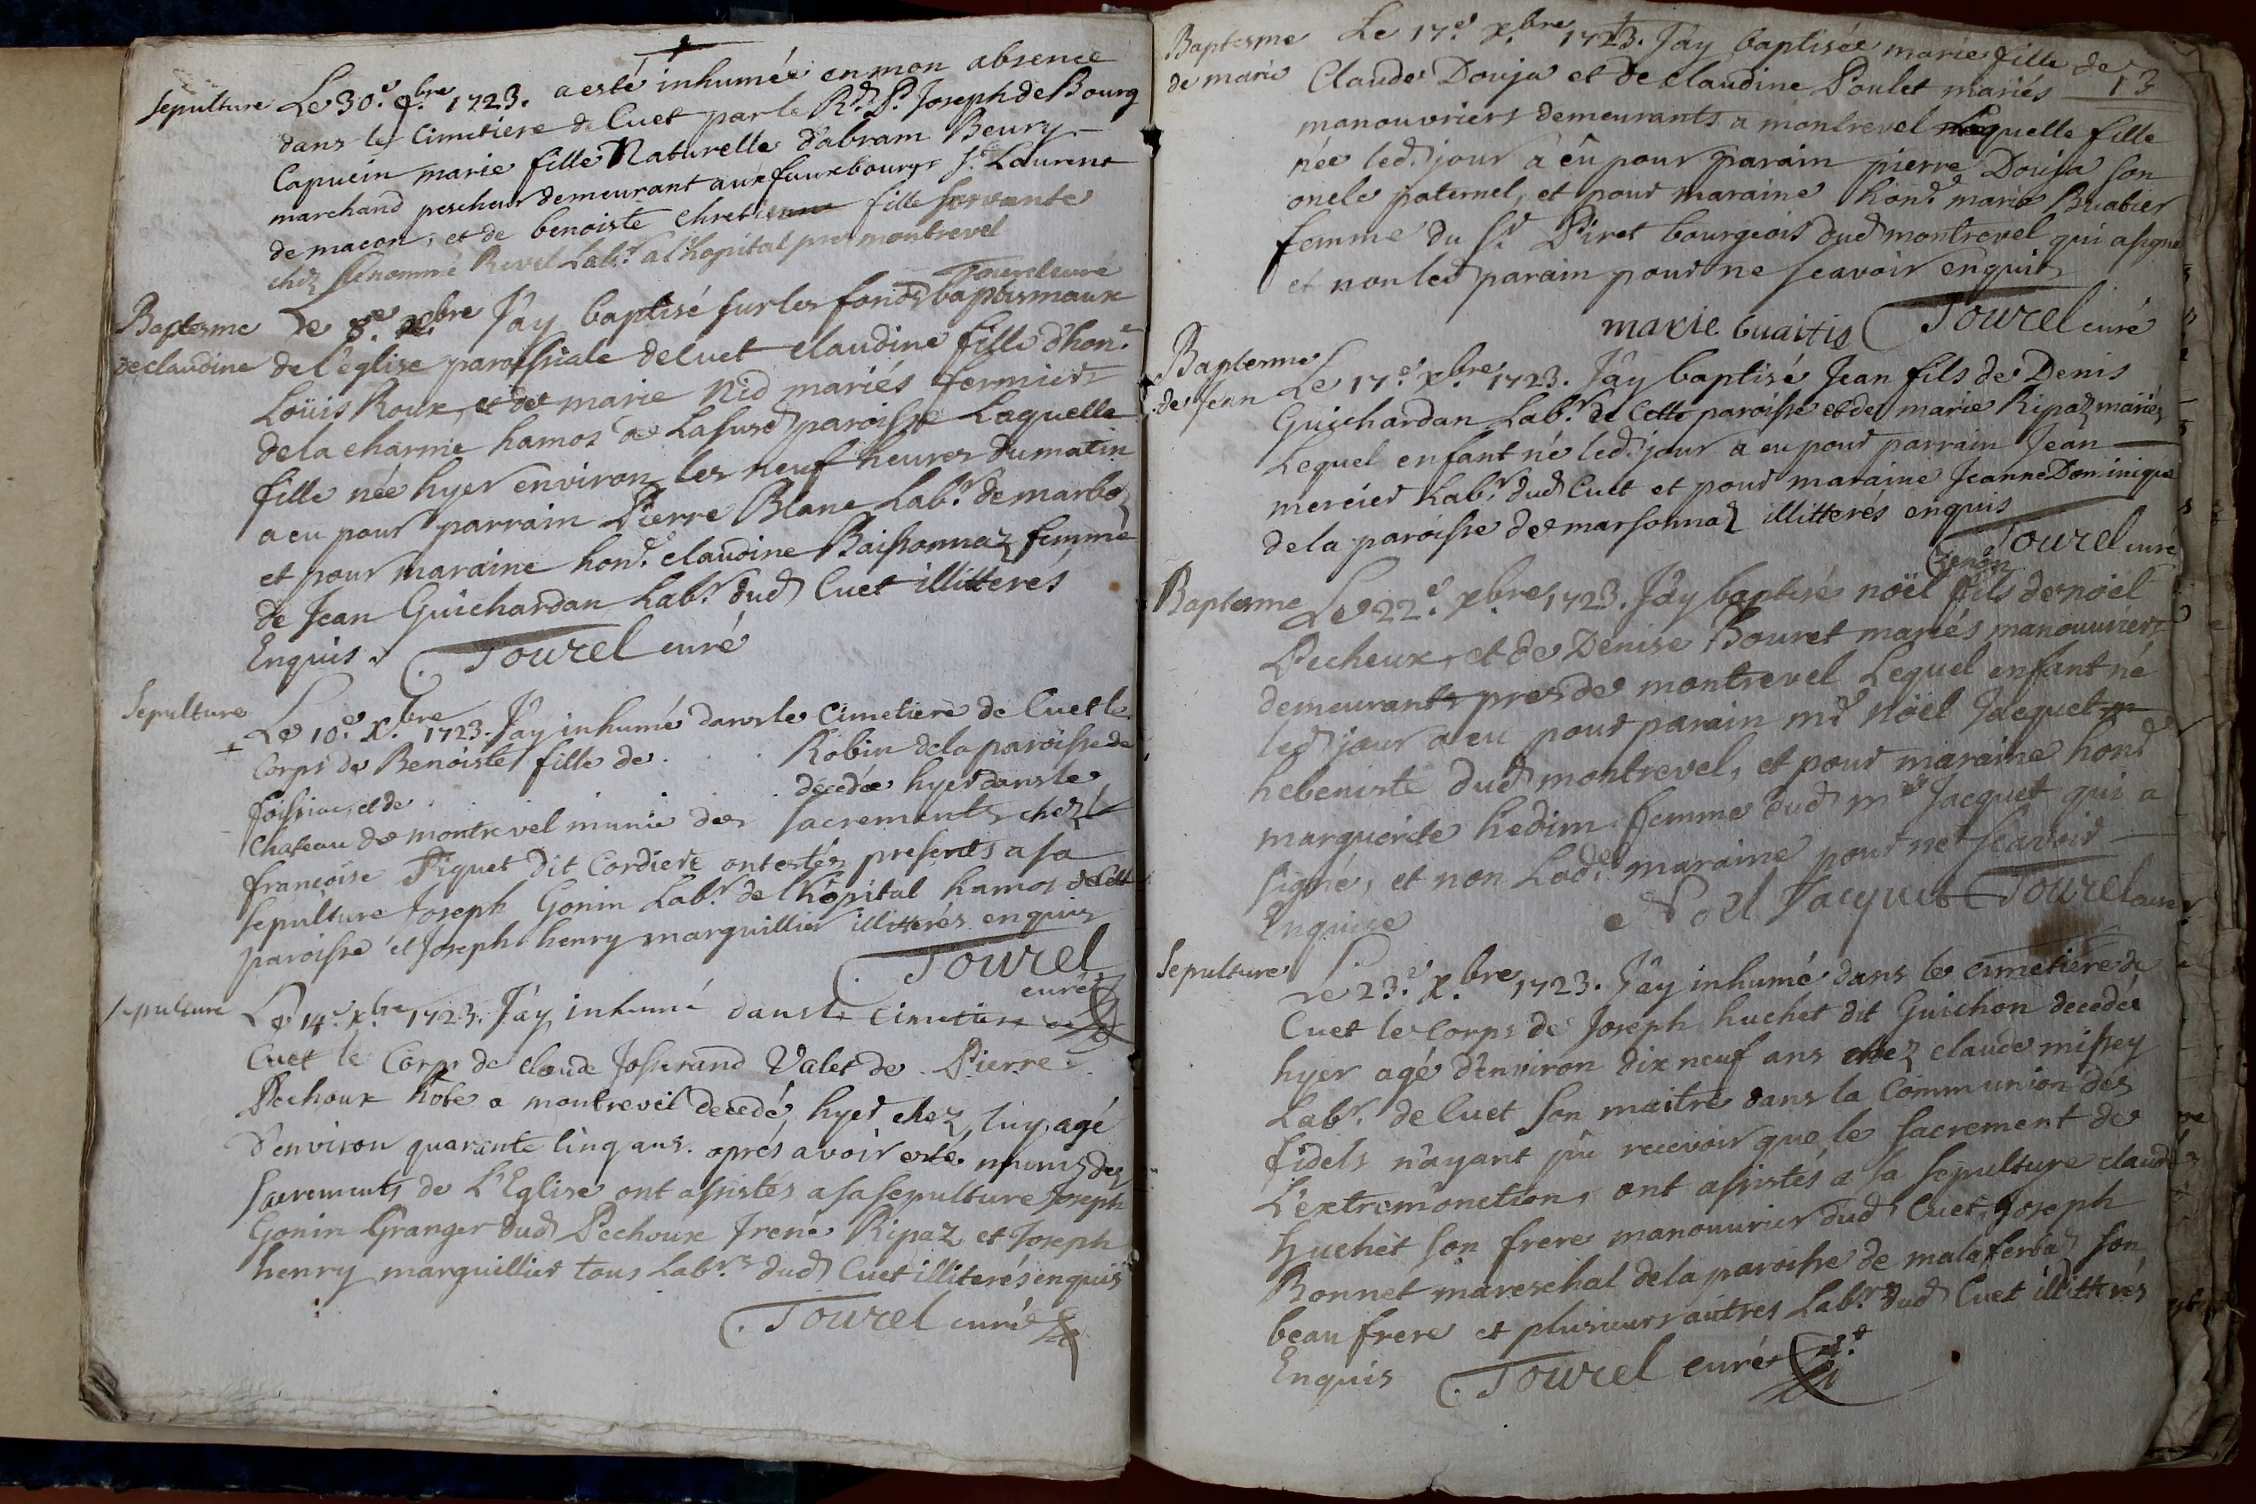 Sepulture Le 30.e 9.bre 1723. a esté inhumée en mon absence
dans le Cimetiere de Cuet par le R.d P. Joseph de Bourg
Capucin marie fille Naturelle d'abram Beury
marchand pescheur demeurant aux fauxbourgs S.t Laurent
de macon, et de benoiste Chretienne fille servante
chez le nommé Revel Lab.r a l'hopital pres montrevel
Tourel curé
Baptesme Le 8.e x.bre J'ay baptisé sur les fonds baptismaux
de claudine de l'église paroissiale de Cuet claudine fille d'hon.e
Loüis Roux, et de marie Nid mariés fermiers
de la charme hamos de Lasusd paroisse Laquelle
fille née hyer environ les neuf heures du matin
a eu pour parrain Pierre Blanc Lab.r de marboz
et pour maraine hon.e claudine Baissonnaz femme
de Jean Guichardan Lab.r dud Cuet illitterés
Enquis. Tourel curé
Sepulture
+ Le 10.e X.bre 1723. J'ay inhumé dans le Cimetiere de Cuet le
Corps de Benoiste fille de Robin de la paroisse de
foissiac, et de decedée hyer dans le
Chateau de montrevel munie des sacrements chez
françoise Piquet dit Cordiere ont estés presents a sa
sepulture Joseph Gonin Lab.r de l'hôpital hamos de cette
paroisse et Joseph henry marguillier illitterés enquis
Tourel
curé
Sepulture Le 14.e x.bre 1723. J'ay inhumé dans le Cimetiere de
Cuet le Corps de Claude Josserand Valet de Pierre
Pechoux hote a montrevel decedé hyer chez luy agé
d'environ quarante cinq ans. aprés avoir esté munis des
sacrements de L'Eglise ont assistés a sa sepulture Joseph
Gonin Granger dud Pechoux Irené Ripaz et Joseph
henry marguillier tous Lab.rs dud Cuet illiterés enquis
Tourel curé
Baptesme Le 17.e x.bre 1723. J'ay baptisée marie fille de
13
de marie Claude Douja et de claudine Poulet mariés
manouvriers demeurants a montrevel Laquelle fille
née led. jour a êu pour parain pierre Douja son
oncle paternel, et pour maraine hon.e marie Buatier
femme du S.r Piret bourgeois dud montrevel qui a signé
et non led parain pour ne scavoir enquis
marie buaitié Tourel curé
Baptesme
de Jean Le 17.e x.bre 1723. J'ay baptisé Jean fils de Denis
Guichardan Lab.r de Cette paroisse et de marie Ripaz mariés
Lequel enfant né led. jour a eu pour parrain Jean
mercier Lab.r dud Cuet et pour maraine Jeanne Dominique
de la paroisse de marsonnaz illitterés enquis
Tourel curé
Baptesme Le 22.e x.bre 1723. J'ay baptisé noël fils de noël
Pecheux, et de Denise Bouret mariés manouuriers
demeurants pres de montrevel Lequel enfant né
led jour a eu pour parain m.e Nöel Jacquet m
hebeniste dud montrevel, et pour maraine hon.e
marguerite hedim femme dud m.e Jacquet qui a
signé, et non Lad.e maraine pour ne scavoir
Enquise Noel Jacquet Tourel curé
Sepulture
Le 23.e x.bre 1723. J'ay inhumé dans le cimetiere de
Cuet le Corps de Joseph huchet dit Guichon decedé
hyer agé d'environ dix neuf ans chez claude missey
Lab.r de Cuet son maitre dans la Communion des
fidels n'ayant pû recevoir que le sacrement de
L'extremonction, ont assistés a sa sepulture claude
Huchet son frere manouurier dud Cuet, Joseph
Bonnet mareschal de la paroisse de malafertaz son
beau frere et plusieurs autres Lab.rs dud Cuet illitterés
Enquis Tourel curé